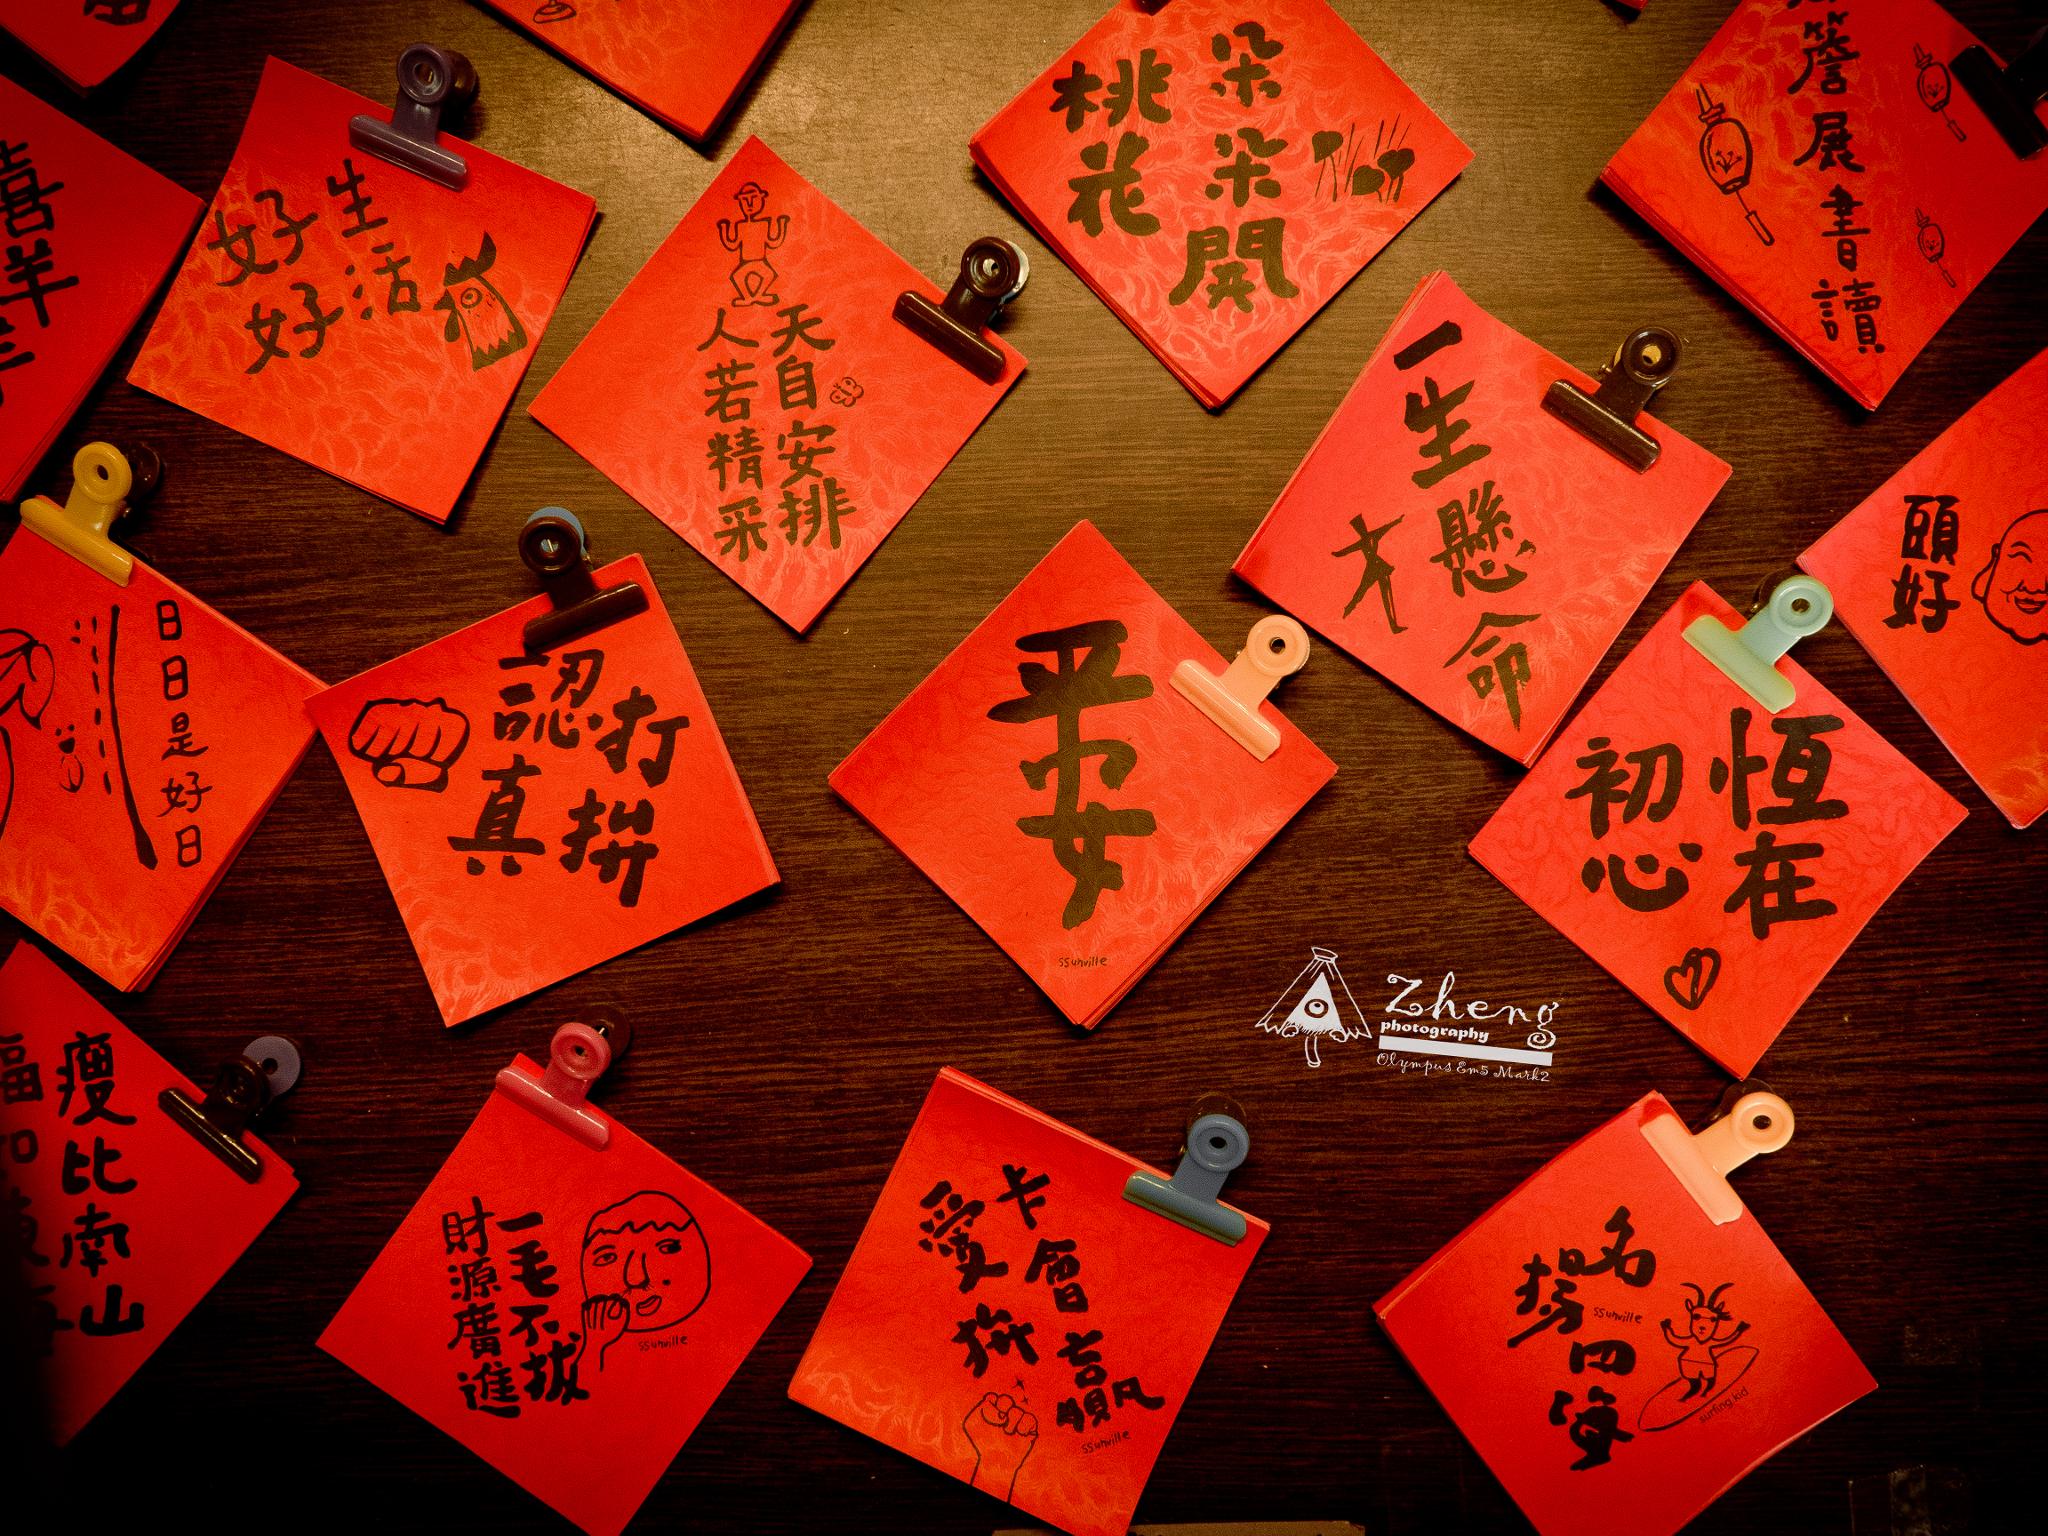 喜羊
好好
生活
人若精采
天自安排
桃花
朵朵開
簷展書讀
一生懸命
頭好
日日是好日
認真
打拚
平安
ssunville
初心
恆在
Zheng
photography
Olympus Em5 Mark2
瘦比南山
一毛不拔
財源廣進
ssunville
愛拚
卡會贏
ssunville
名揚四海
ssunville
surfing kid